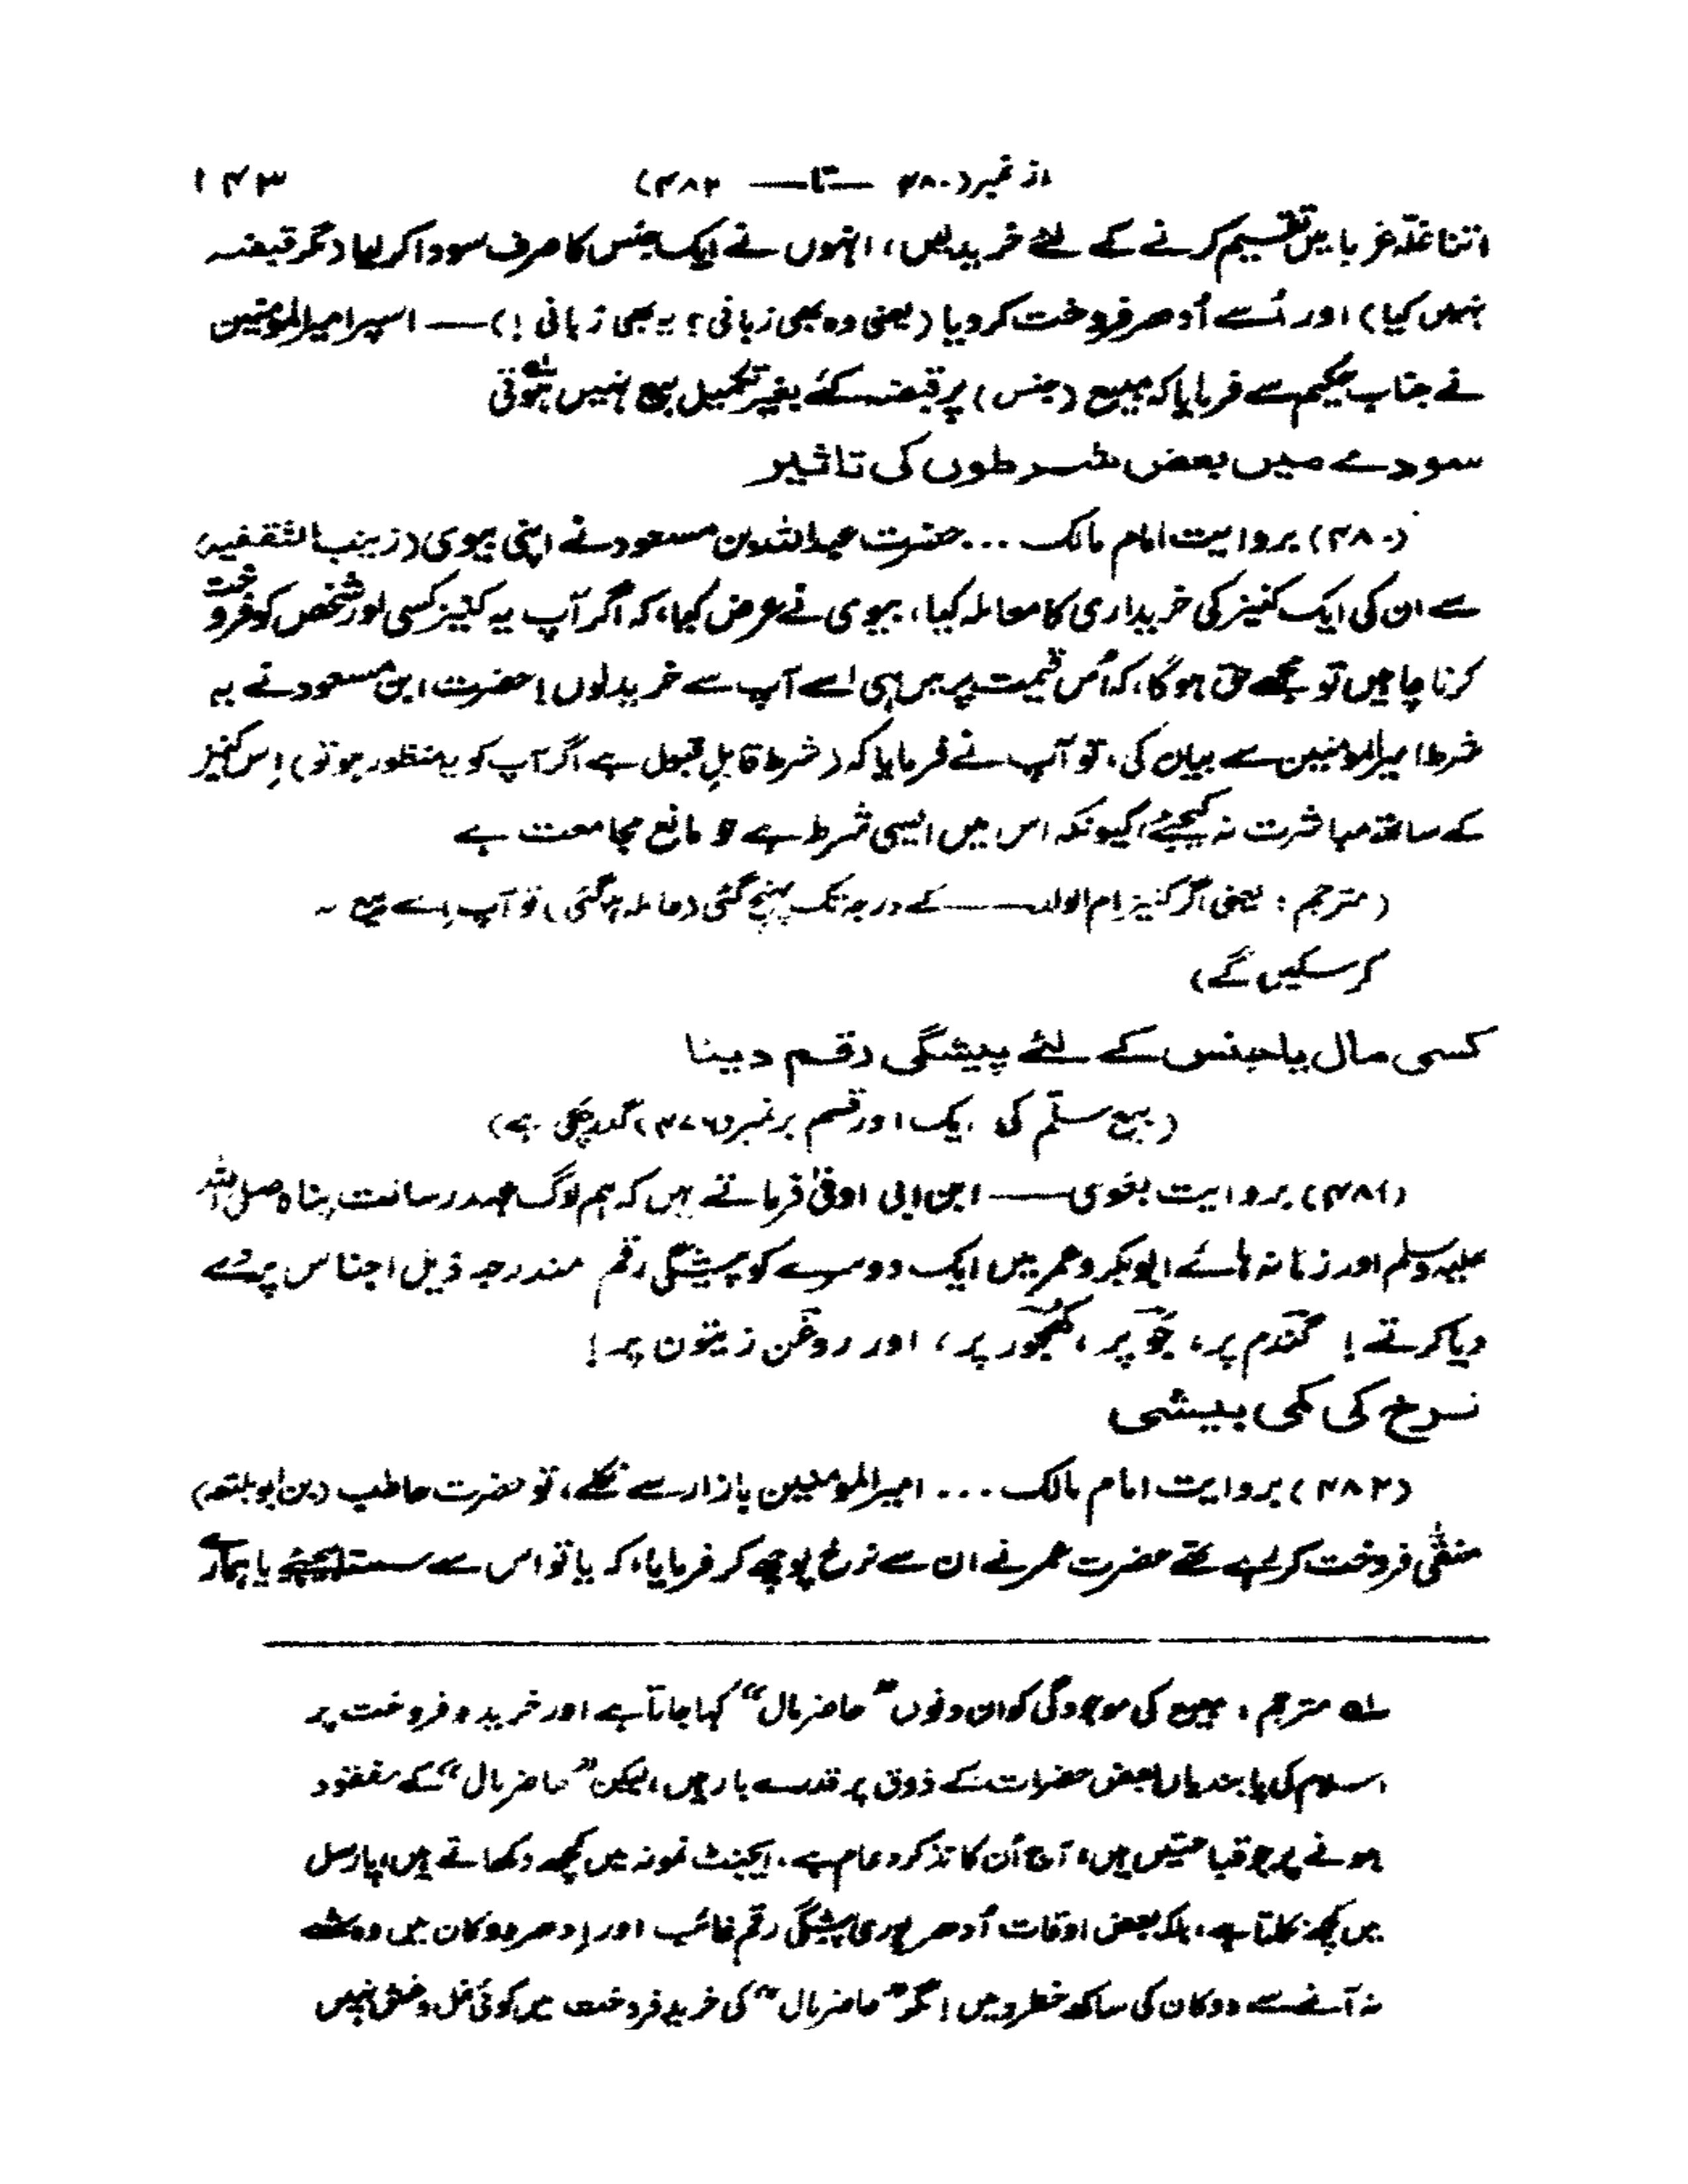 از نمبر (۴۸۰ — تا — ۴۸۲) ۱۴۳
اتنا غلّہ غربا میں تقسیم کرنے کے لئے خرید لیں، انہوں نے ایک جنس کا صرف سودا کر لیا (مگر قبضہ
نہیں کیا) اور اُسے اُدھر فروخت کر دیا (یعنی وہ بھی زبانی؟ یہ بھی زبانی!) — اس پر امیرالمؤمنین
نے جناب حکیم سے فرمایا کہ مبیع (جنس) پر قبضہ کئے بغیر تکمیل بیع نہیں ہوتی
سودے میں بعض شرطوں کی تاثیر
(۴۸۰) بروایت امام مالک ... حضرت عبداللہ بن مسعود نے اپنی بیوی (زینب الثقفیہ)
سے ان کی ایک کنیز کی خریداری کا معاملہ کیا، بیوی نے عرض کیا، کہ اگر آپ یہ کنیز کسی اور شخص کو فروخت
کرنا چاہیں تو مجھے حق ہوگا، کہ اُس قیمت پر میں ہی اسے آپ سے خرید لوں! حضرت ابن مسعود نے یہ
شرط امیرالمومنین سے بیان کی، تو آپ نے فرمایا کہ (شرط قابلِ قبول ہے اگر آپ کو یہ منظور ہو تو) اِس کنیز
کے ساتھ مباشرت نہ کیجئے، کیونکہ اس میں ایسی شرط ہے جو مانع مجامعت ہے
(مترجم: یعنی اگر کنیز اِم الولد — کے درجہ تک پہنچ گئی (حاملہ ہو گئی) تو آپ اِسے بیع نہ
کر سکیں گے)
کسی مال یا جنس کے لئے پیشگی رقم دینا
(بیع سلَم کی ایک اور قسم بر نمبر (۴۷۶) گذر چکی ہے)
(۴۸۱) بروایت بغوی — ابن ابی اوفیٰ فرماتے ہیں کہ ہم لوگ عہد رسالت پناہ صلی اللہ
علیہ وسلم اور زمانہ ہائے ابوبکر و عمر میں ایک دوسرے کو پیشگی رقم مندرجہ ذیل اجناس پر دے
دیا کرتے! گندم پر، جَو پر، کھجور پر، اور روغن زیتون پر!
نرخ کی کمی بیشی
(۴۸۲) بروایت امام مالک ... امیرالمومنین بازار سے نکلے، تو حضرت حاطب (بن ابو بلتعہ)
منقّی فروخت کر رہے تھے حضرت عمر نے ان سے نرخ پوچھ کر فرمایا، کہ یا تو اس سے سستا بیچئے یا ہمارے
؎۱ مترجم، مبیع کی موجودگی کو ان دنوں "حاضر مال" کہا جاتا ہے اور خرید و فروخت پر
اسلام کی پابندیاں بعض حضرات کے ذوق پر قدرے بار ہیں، لیکن "حاضر مال" کے مفقود
ہونے پر جو قباحتیں ہیں، آج اُن کا تذکرہ عام ہے، ایجنٹ نمونہ میں کچھ دکھاتے ہیں، پارسل
میں کچھ نکلتا ہے، بلکہ بعض اوقات اُدھر پوری پیشگی رقم غائب اور اِدھر دوکان میں وہ شے
نہ آنے سے دوکان کی ساکھ خطرہ میں! مگر "حاضر مال" کی خرید فروخت میں کوئی غل و غش نہیں